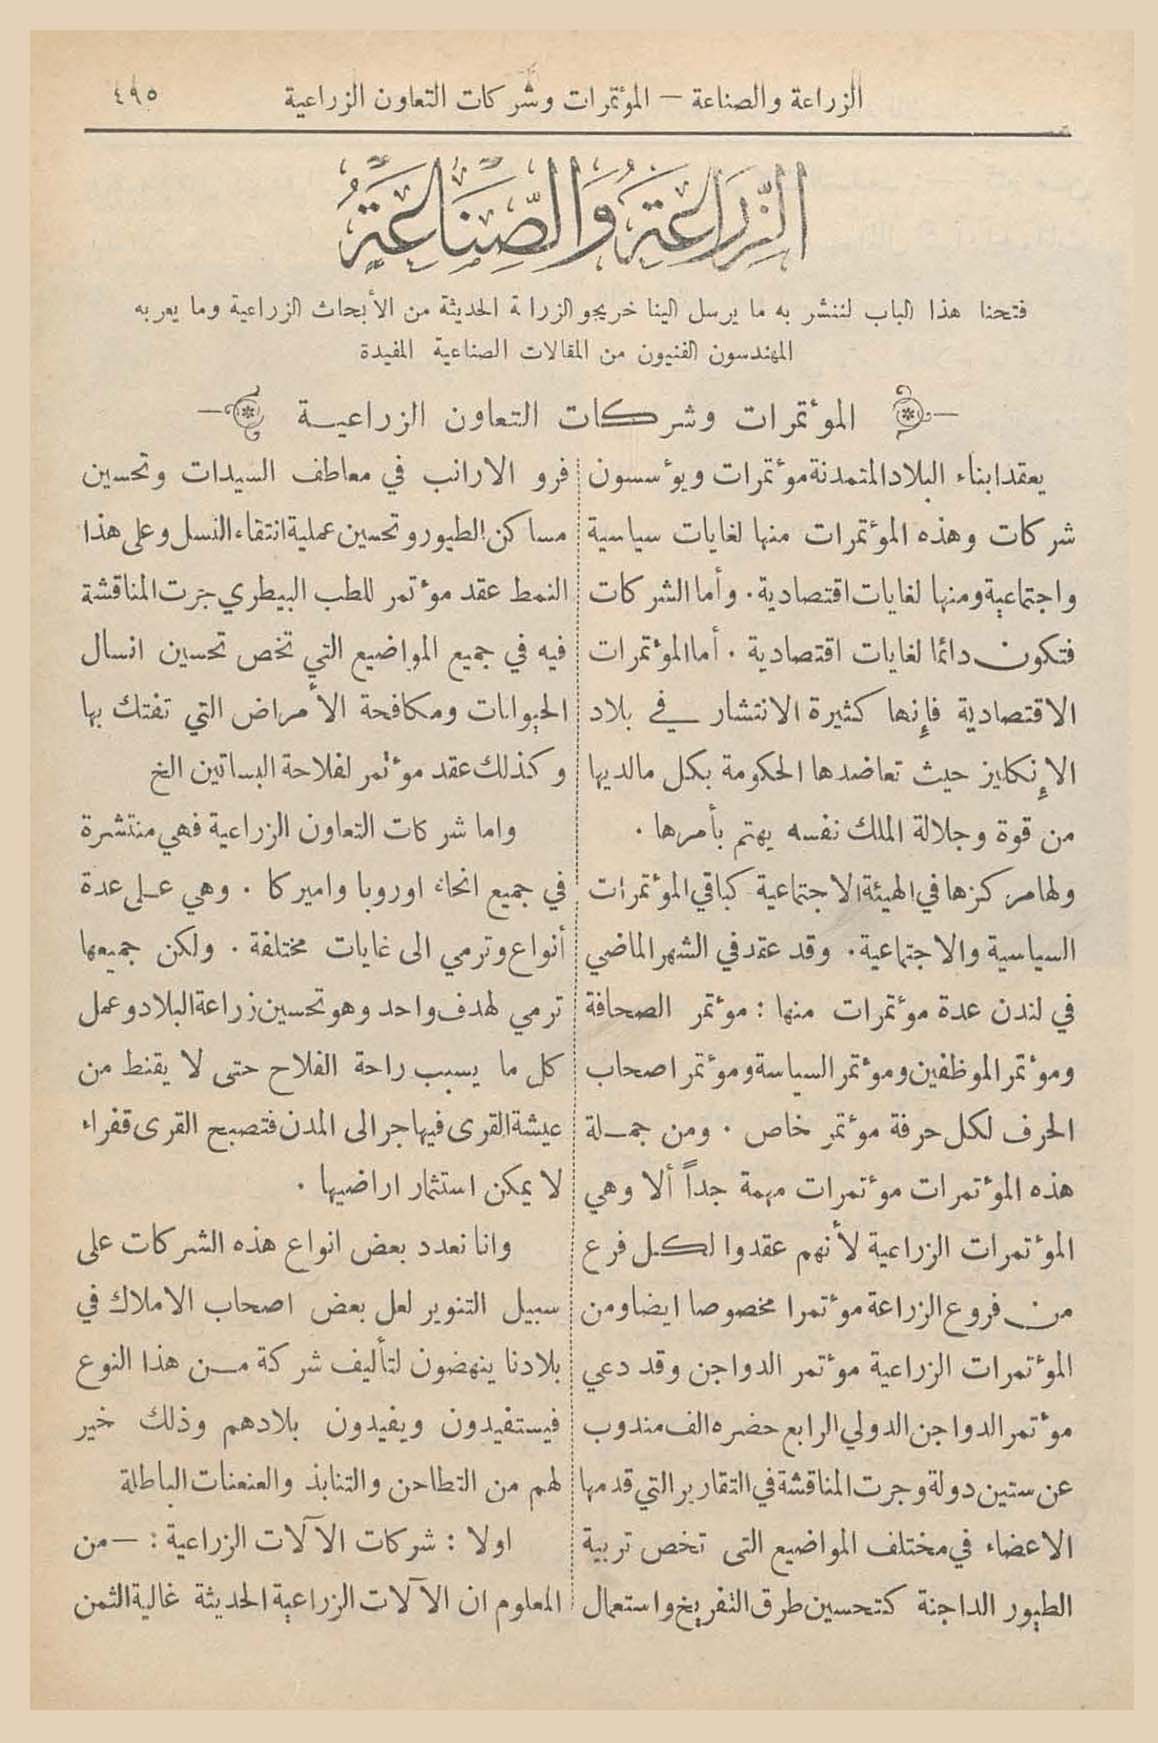 الزراعة والصناعة — المؤتمرات وشركات التعاون الزراعية ٤٩٥
الزِّرَاعَةُ وَالصِّنَاعَةُ
فتحنا هذا الباب لننشر به ما يرسل الينا خريجو الزراعة الحديثة من الأبحاث الزراعية وما يعربه
المهندسون الفنيون من المقالات الصناعية المفيدة
المؤتمرات وشركات التعاون الزراعية
يعقد ابناء البلاد المتمدنة مؤتمرات ويؤسسون
شركات وهذه المؤتمرات منها لغايات سياسية
واجتماعية ومنها لغايات اقتصادية. وأما الشركات
فتكون دائما لغايات اقتصادية . أما المؤتمرات
الاقتصادية فإنها كثيرة الانتشار في بلاد
الإنكليز حيث تعاضدها الحكومة بكل مالديها
من قوة وجلالة الملك نفسه يهتم بأمرها .
ولها مركزها في الهيئة الاجتماعية كباقي المؤتمرات
السياسية والاجتماعية. وقد عقد في الشهر الماضي
في لندن عدة مؤتمرات منها : مؤتمر الصحافة
ومؤتمر الموظفين ومؤتمر السياسة ومؤتمر اصحاب
الحرف لكل حرفة مؤتمر خاص . ومن جملة
هذه المؤتمرات مؤتمرات مهمة جداً ألا وهي
المؤتمرات الزراعية لأنهم عقدوا لكل فرع
من فروع الزراعة مؤتمرا مخصوصا ايضا ومن
المؤتمرات الزراعية مؤتمر الدواجن وقد دعي
مؤتمر الدواجن الدولي الرابع حضره الف مندوب
عن ستين دولة وجرت المناقشة في التقارير التي قدمها
الاعضاء في مختلف المواضيع التى تخص تربية
الطيور الداجنة كتحسين طرق التفريخ واستعمال
فرو الارانب في معاطف السيدات وتحسين
مساكن الطيور وتحسين عملية انتقاء النسل وعلى هذا
النمط عقد مؤتمر للطب البيطري جرت المناقشة
فيه في جميع المواضيع التي تخص تحسين انسال
الحيوانات ومكافحة الأمراض التي تفتك بها
وكذلك عقد مؤتمر لفلاحة البساتين الخ
واما شركات التعاون الزراعية فهي منتشرة
في جميع انحاء اوروبا واميركا . وهي على عدة
أنواع وترمي الى غايات مختلفة . ولكن جميعها
ترمي لهدف واحد وهو تحسين زراعة البلاد وعمل
كل ما يسبب راحة الفلاح حتى لا يقنط من
عيشة القرى فيهاجر الى المدن فتصبح القرى قفراء
لا يمكن استثمار اراضيها .
وانا نعدد بعض انواع هذه الشركات على
سبيل التنوير لعل بعض اصحاب الاملاك في
بلادنا ينهضون لتأليف شركة من هذا النوع
فيستفيدون ويفيدون بلادهم وذلك خير
لهم من التطاحن والتنابذ والعنعنات الباطلة
اولا : شركات الآلات الزراعية : — من
المعلوم ان الآلات الزراعية الحديثة غالية الثمن